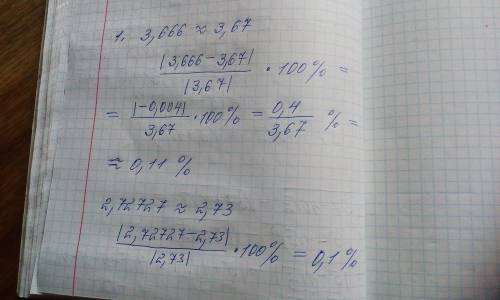 1. 3,666 ≈ 3,67
|3,666 - 3,67| / |3,67| • 100% =
= |-0,004| / 3,67 • 100% = 0,4 / 3,67 % =
≈ 0,11 %
2,72727 ≈ 2,73
|2,72727 - 2,73| / |2,73| • 100% = 0,1 %